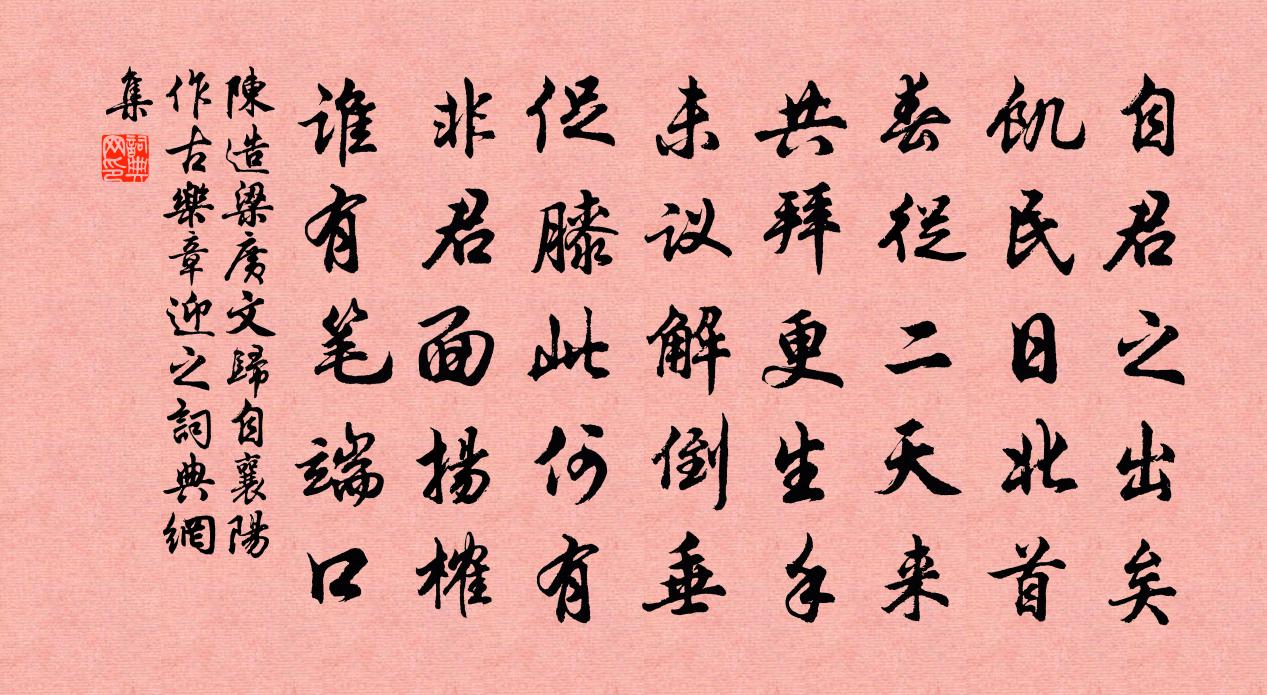 自君之出矣
飢民日北首
春從二天来
共拜更生手
未议解倒垂
促膝此何有
非君面揚榷
谁有笔端口
陳造梁廣文歸自襄陽
作古樂章迎之詞典網
集
詞典
网印